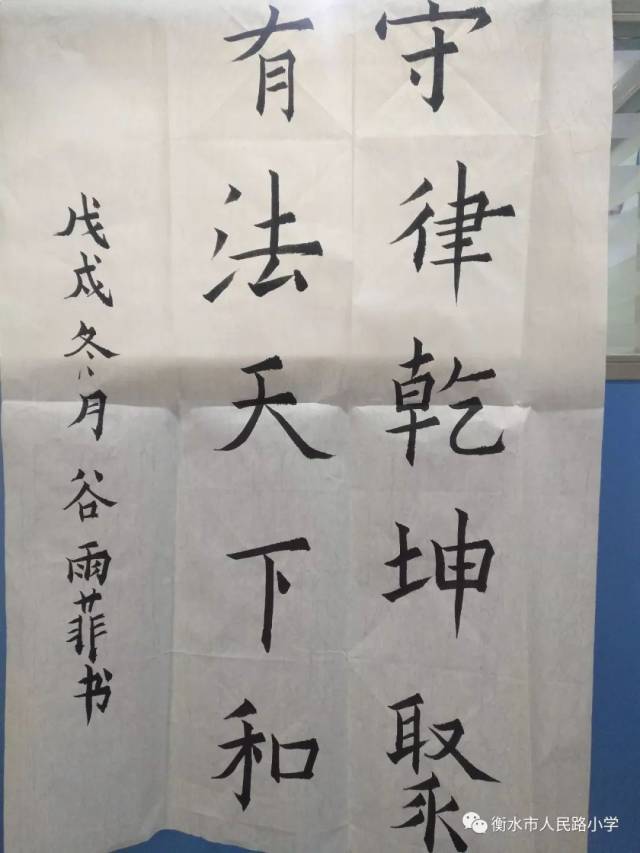 守律乾坤聚
有法天下和
戊戌冬月谷雨菲书
衡水市人民路小学